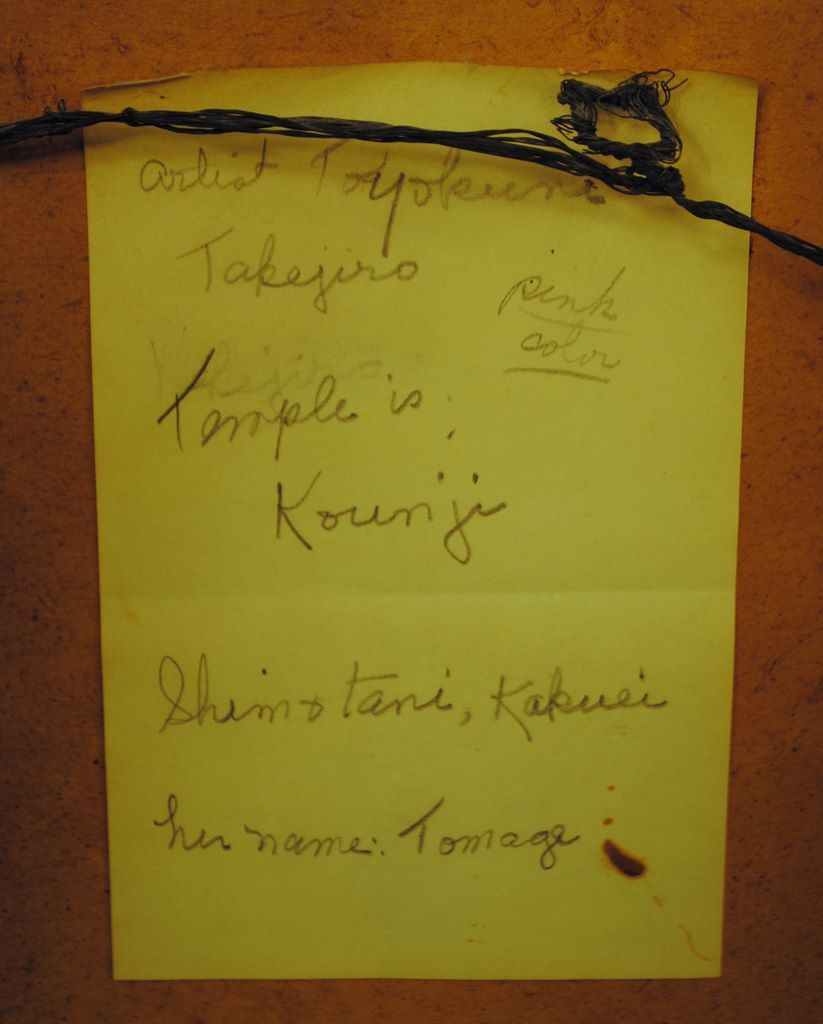 artist Toyokuni
Takejiro
pink
color
Temple is:
Kouniji
Shimotani, Kakuei
her name: Tomage